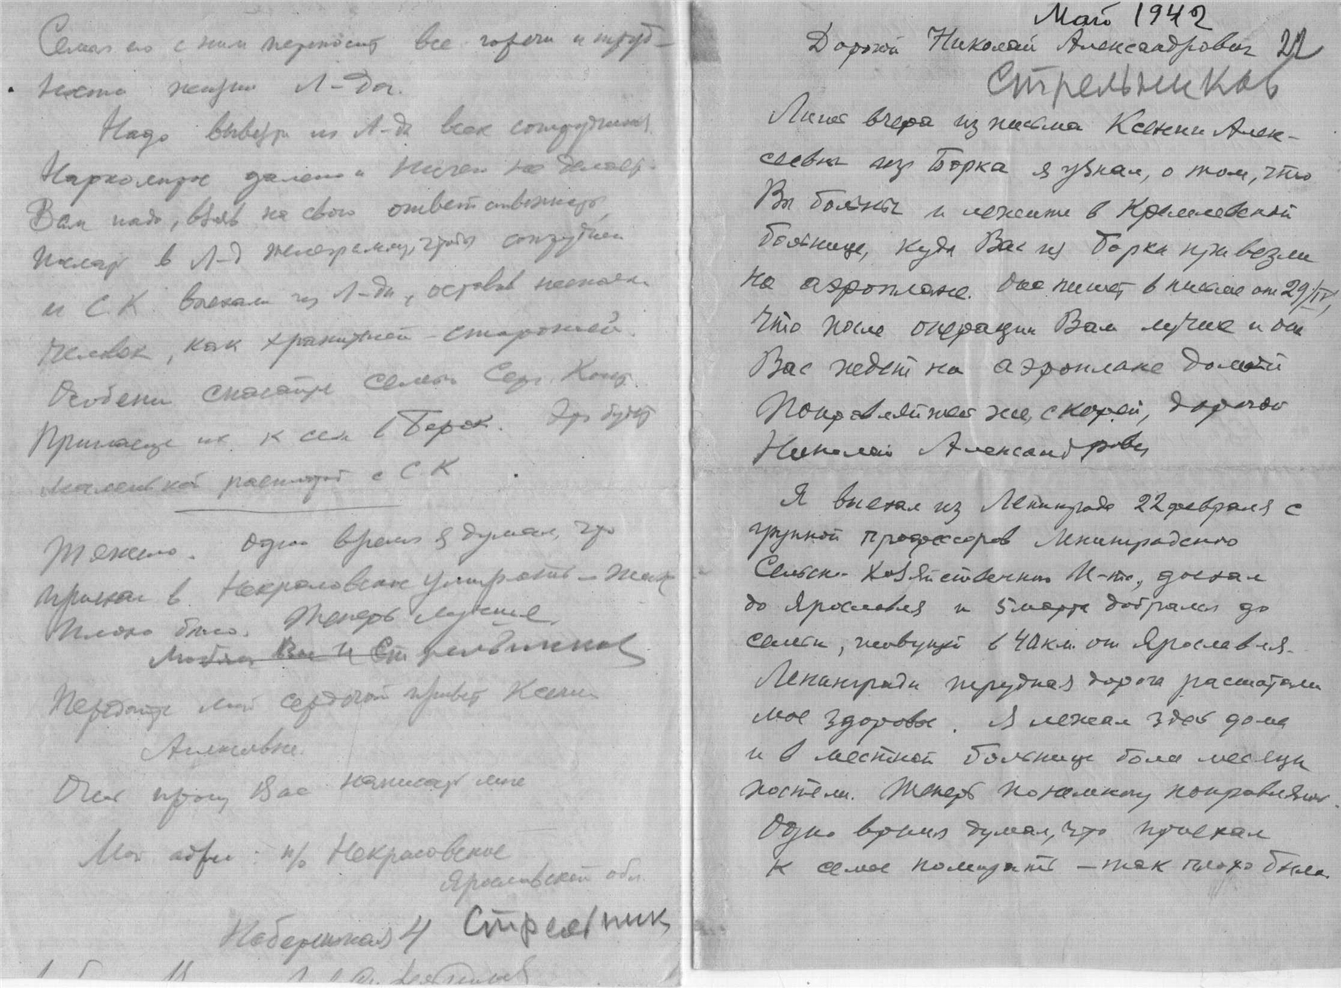 Май 1942
Дорогой Николай Александрович 22
Стрельников
Лишь вчера из письма Ксении Алек-
сеевны из Борка я узнал, о том, что
Вы больны и лежите в Кремлевской
больнице, куда Вас из Борка привезли
на аэроплане. Она пишет в письме от 29/IV,
что после операции Вам лучше и он
Вас ждет на аэроплане домой
Поправляйтесь же, скорей, дорогой
Николай Александрович
Я выехал из Ленинграда 22 февраля с
группой профессоров Ленинградского
Сельско-Хозяйственного И-та, доехал
до Ярославля и 5 марта добрался до
семьи, живущей в 40 км. от Ярославля.
Ленинград и трудная дорога расшатали
мое здоровье. Я лежал здесь дома
и в местной больнице два месяца
постели. Теперь понемногу поправляюсь.
Одно время думал, что приехал
к семье помирать – так плохо было.
Семья его с ним переносит все горечи и труд-
ности жизни Л-да.
Надо вывезти из Л-да всех сотрудников.
Наркомпрос далеко и ничего не делает.
Вам надо, взяв на свою ответственность,
послать в Л-д телеграмму, чтобы сотрудники
и С.К. выехали из Л-да, оставив несколько
человек, как хранителей-сторожей.
Особенно спасайте семью Серг. Конст.
Пригласите их к себе в Борок. Это будет
маленькой расплатой с С.К
Тяжело. Одно время я думал, что
приехал в Некрасовское умирать – так
плохо было. Теперь лучше.
Любящ Вас Н Стрельников
Передайте мой сердечный привет Ксении
Алексеевне.
Очень прошу Вас написать мне
Мой адрес: п/о Некрасовское
Ярославской обл.
Набережная 4 Стрельник